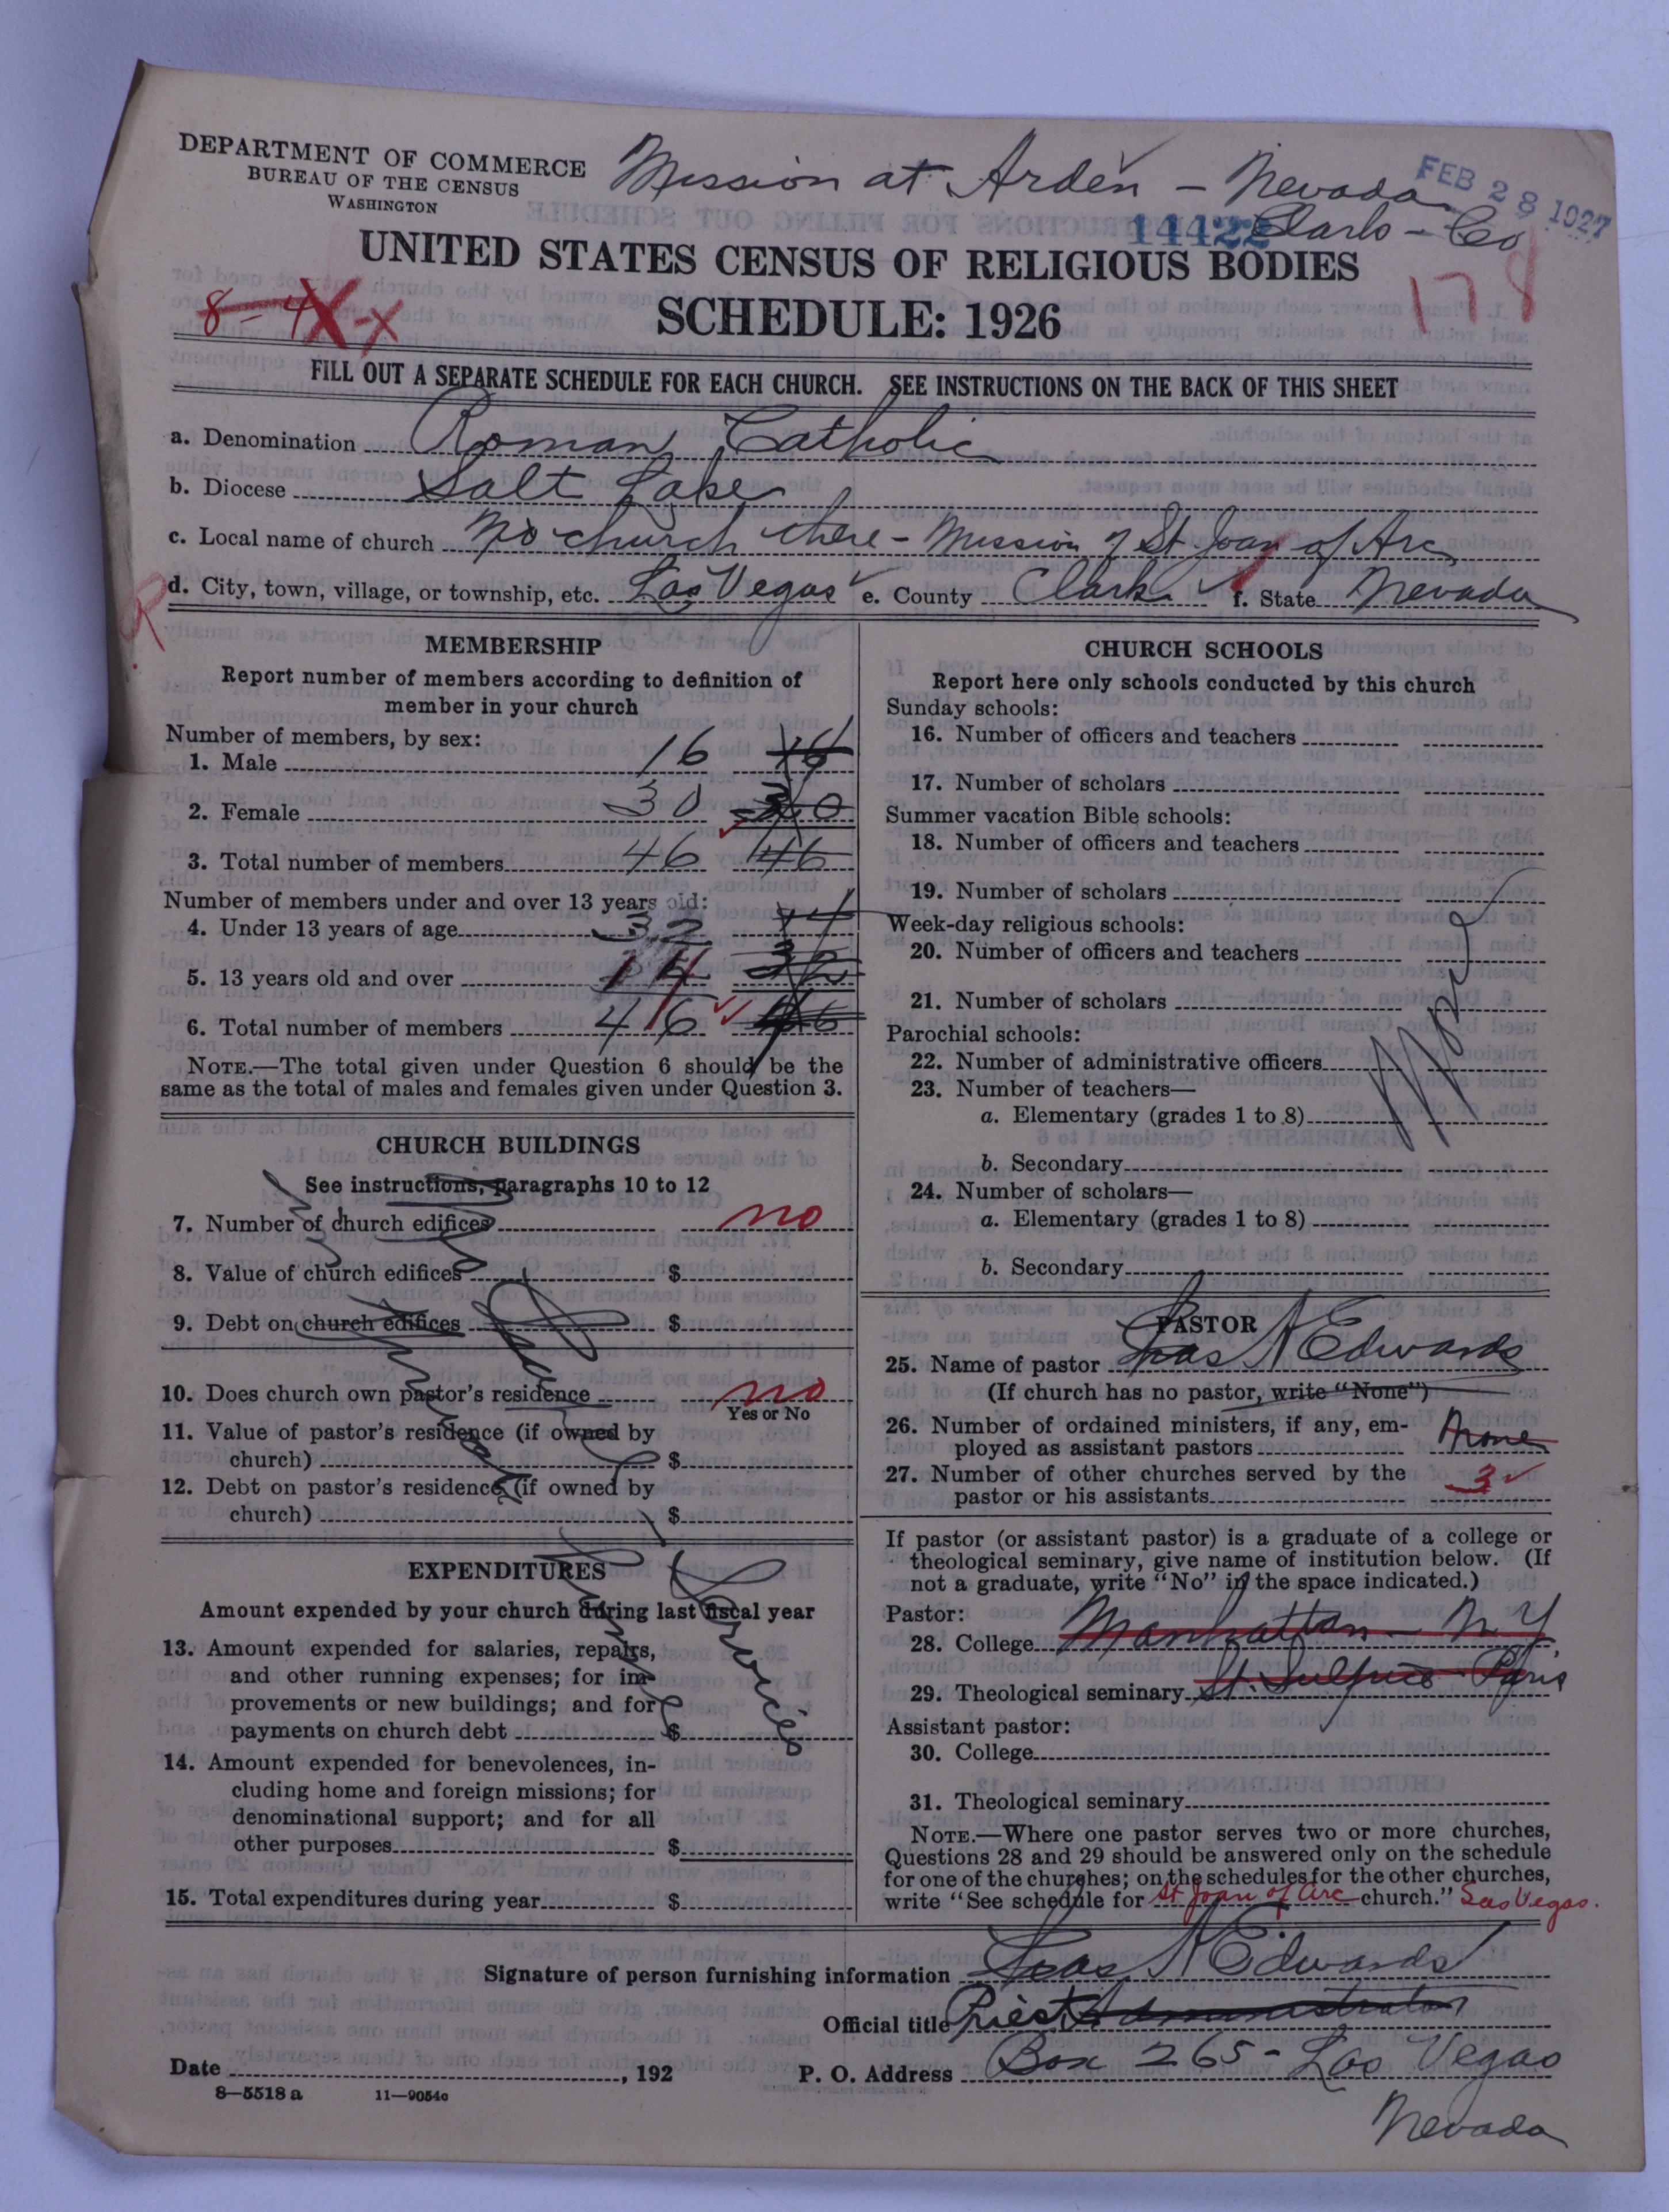 DEPARTMENT OF COMMERCE
BUREAU OF THE CENSUS
WASHINGTON
Mission at Arden - Nevada
Clark - Co
FEB 28 1927
14422
UNITED STATES CENSUS OF RELIGIOUS BODIES
SCHEDULE: 1926
8-4X-X
178
FILL OUT A SEPARATE SCHEDULE FOR EACH CHURCH. SEE INSTRUCTIONS ON THE BACK OF THIS SHEET
a. Denomination Roman Catholic
b. Diocese Salt Lake
c. Local name of church No church there - Mission of St Joan of Arc
d. City, town, village, or township, etc. Las Vegas e. County Clark f. State Nevada
R
MEMBERSHIP
Report number of members according to definition of
member in your church
Number of members, by sex:
1. Male 16 16
2. Female 30 30
3. Total number of members 46 46
Number of members under and over 13 years old:
4. Under 13 years of age 32 14
5. 13 years old and over 14 32
6. Total number of members 46 46
NOTE.—The total given under Question 6 should be the
same as the total of males and females given under Question 3.
CHURCH BUILDINGS
See instructions, paragraphs 10 to 12
7. Number of church edifices no
8. Value of church edifices $
9. Debt on church edifices $
10. Does church own pastor's residence no
Yes or No
11. Value of pastor's residence (if owned by
church) $
12. Debt on pastor's residence (if owned by
church) $
EXPENDITURES
Amount expended by your church during last fiscal year
13. Amount expended for salaries, repairs,
and other running expenses; for im-
provements or new buildings; and for
payments on church debt $
14. Amount expended for benevolences, in-
cluding home and foreign missions; for
denominational support; and for all
other purposes $
15. Total expenditures during year $
services
CHURCH SCHOOLS
Report here only schools conducted by this church
Sunday schools:
16. Number of officers and teachers
17. Number of scholars
Summer vacation Bible schools:
18. Number of officers and teachers
19. Number of scholars
Week-day religious schools:
20. Number of officers and teachers
21. Number of scholars
Parochial schools:
22. Number of administrative officers
23. Number of teachers—
a. Elementary (grades 1 to 8)
b. Secondary
24. Number of scholars—
a. Elementary (grades 1 to 8)
b. Secondary
None
PASTOR
25. Name of pastor Jas N Edwards
(If church has no pastor, write "None")
26. Number of ordained ministers, if any, em-
ployed as assistant pastors None
27. Number of other churches served by the
pastor or his assistants 3
If pastor (or assistant pastor) is a graduate of a college or
theological seminary, give name of institution below. (If
not a graduate, write "No" in the space indicated.)
Pastor:
28. College Manhattan - N Y
29. Theological seminary St. Sulpice Paris
Assistant pastor:
30. College
31. Theological seminary
NOTE.—Where one pastor serves two or more churches,
Questions 28 and 29 should be answered only on the schedule
for one of the churches; on the schedules for the other churches,
write "See schedule for St Joan of Arc church." Las Vegas.
Signature of person furnishing information Jas N Edwards
Official title Priest Administrator
Date , 192 P. O. Address Box 265 - Las Vegas
Nevada
8—5518 a 11—9054c